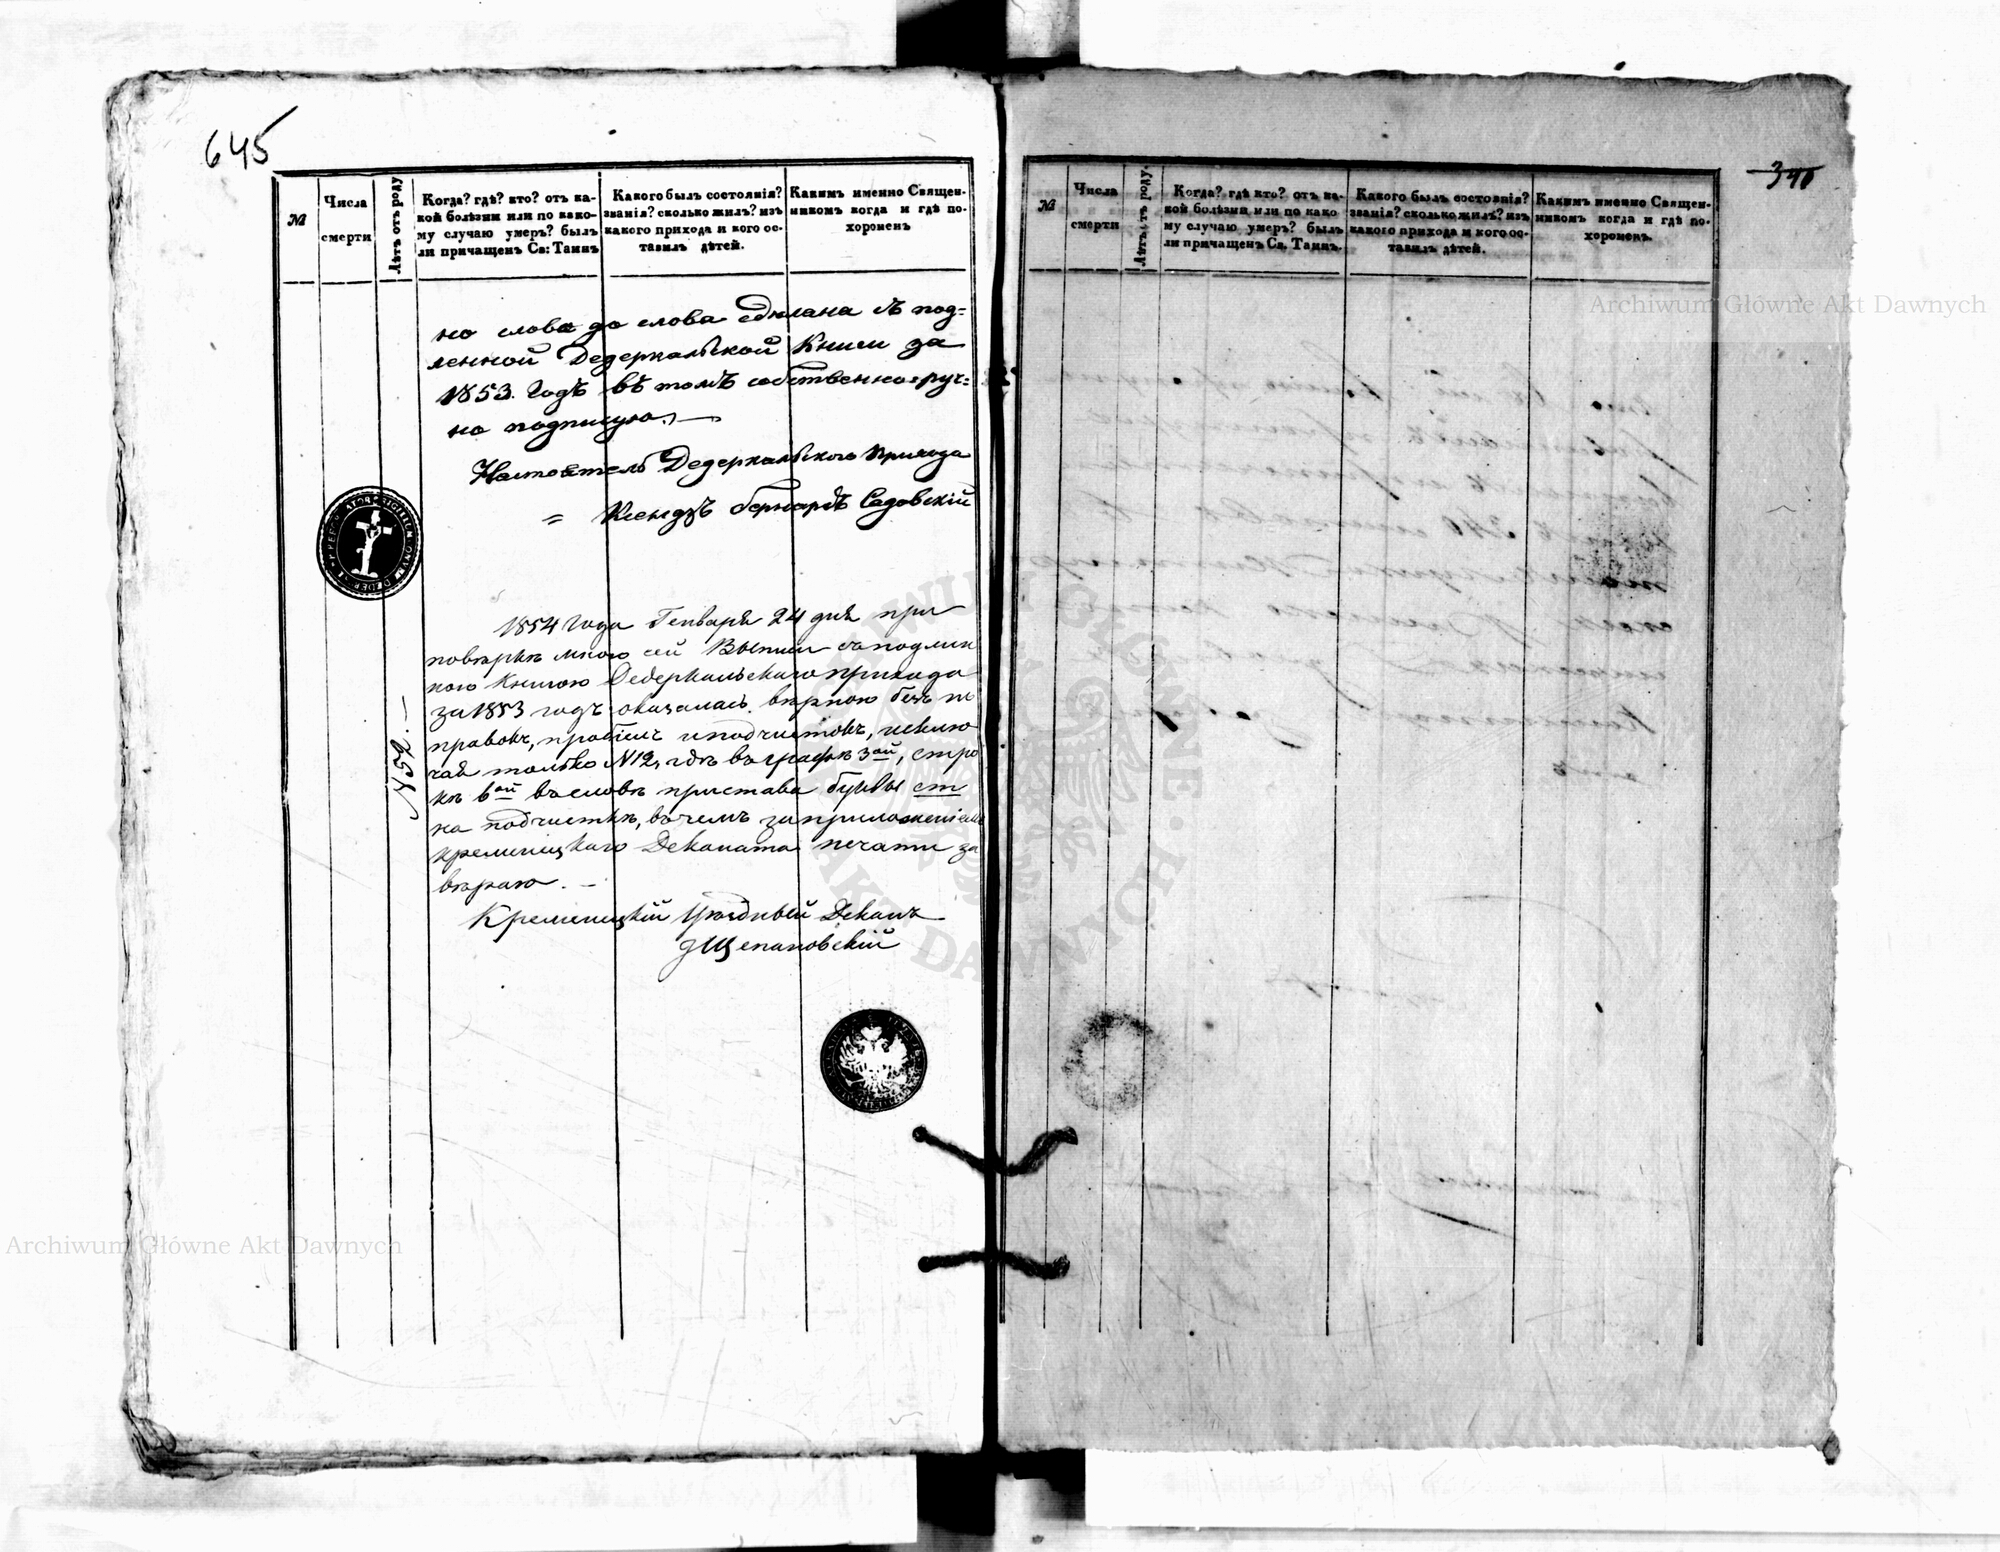 645
№
Числа
смерти
Лѣтъ отъ роду
Когда? гдѣ? кто? отъ ка-
кой болѣзни или по како-
му случаю умеръ? былъ
ли причащенъ Св: Таинъ
Какого былъ состоянія?
званія? сколько жилъ? изъ
какого прихода и кого ос-
тавилъ дѣтей.
Какимъ именно Священ-
никомъ когда и гдѣ по-
хороненъ
но слово до слова сдѣлана съ под-
ленной Дедеркальской Книги за
1853. Годъ въ томъ собственноруч-
но подписую. —
Настоятель Дедеркальского Прихода
= Ксендзъ Бернардъ Садовскій
1854 года Генваря 24 дня при
повѣркѣ мною сей Выписи съ подлин
ною Книгою Дедеркальскаго прихода
за 1853 годъ оказалась вѣрною безъ по
правокъ, пробѣлъ и подчистокъ, исклю
чая только N 12, гдѣ въ графѣ 3ой, стро
кѣ 6ой въ словѣ пристава буквы ст
на подчисткѣ, въ чемъ за приложеніемъ
Кременецкаго Деканата печати за
вѣряю. —
Кременецкій Уѣздный Деканъ
Щепановскій
N 52. —
340
№
Числа
смерти
Лѣтъ отъ роду.
Когда? гдѣ кто? отъ ка-
кой болѣзни или по како
му случаю умеръ? былъ
ли причащенъ Св. Таинъ.
Какого былъ состоянія?
званія? сколько жилъ? изъ
какого прихода и кого ос-
тавилъ дѣтей.
Какимъ именно Священ-
никомъ когда и гдѣ по-
хороненъ.
Archiwum Główne Akt Dawnych
Archiwum Główne Akt Dawnych
ARCHIWUM GŁÓWNE AKT DAWNYCH